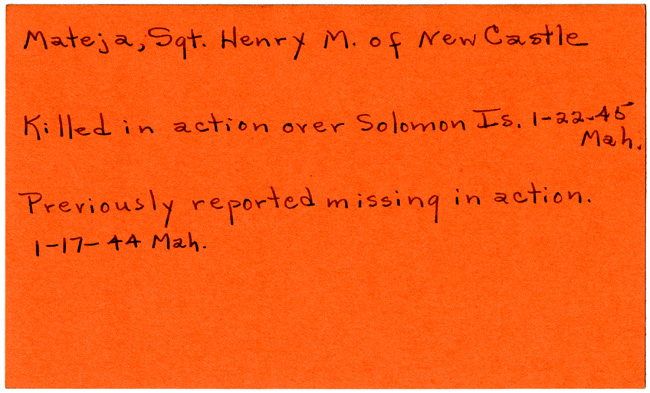 Mateja, Sgt. Henry M. of New Castle
Killed in action over Solomon Is. 1-22-45
Mah.
Previously reported missing in action.
1-17-44 Mah.